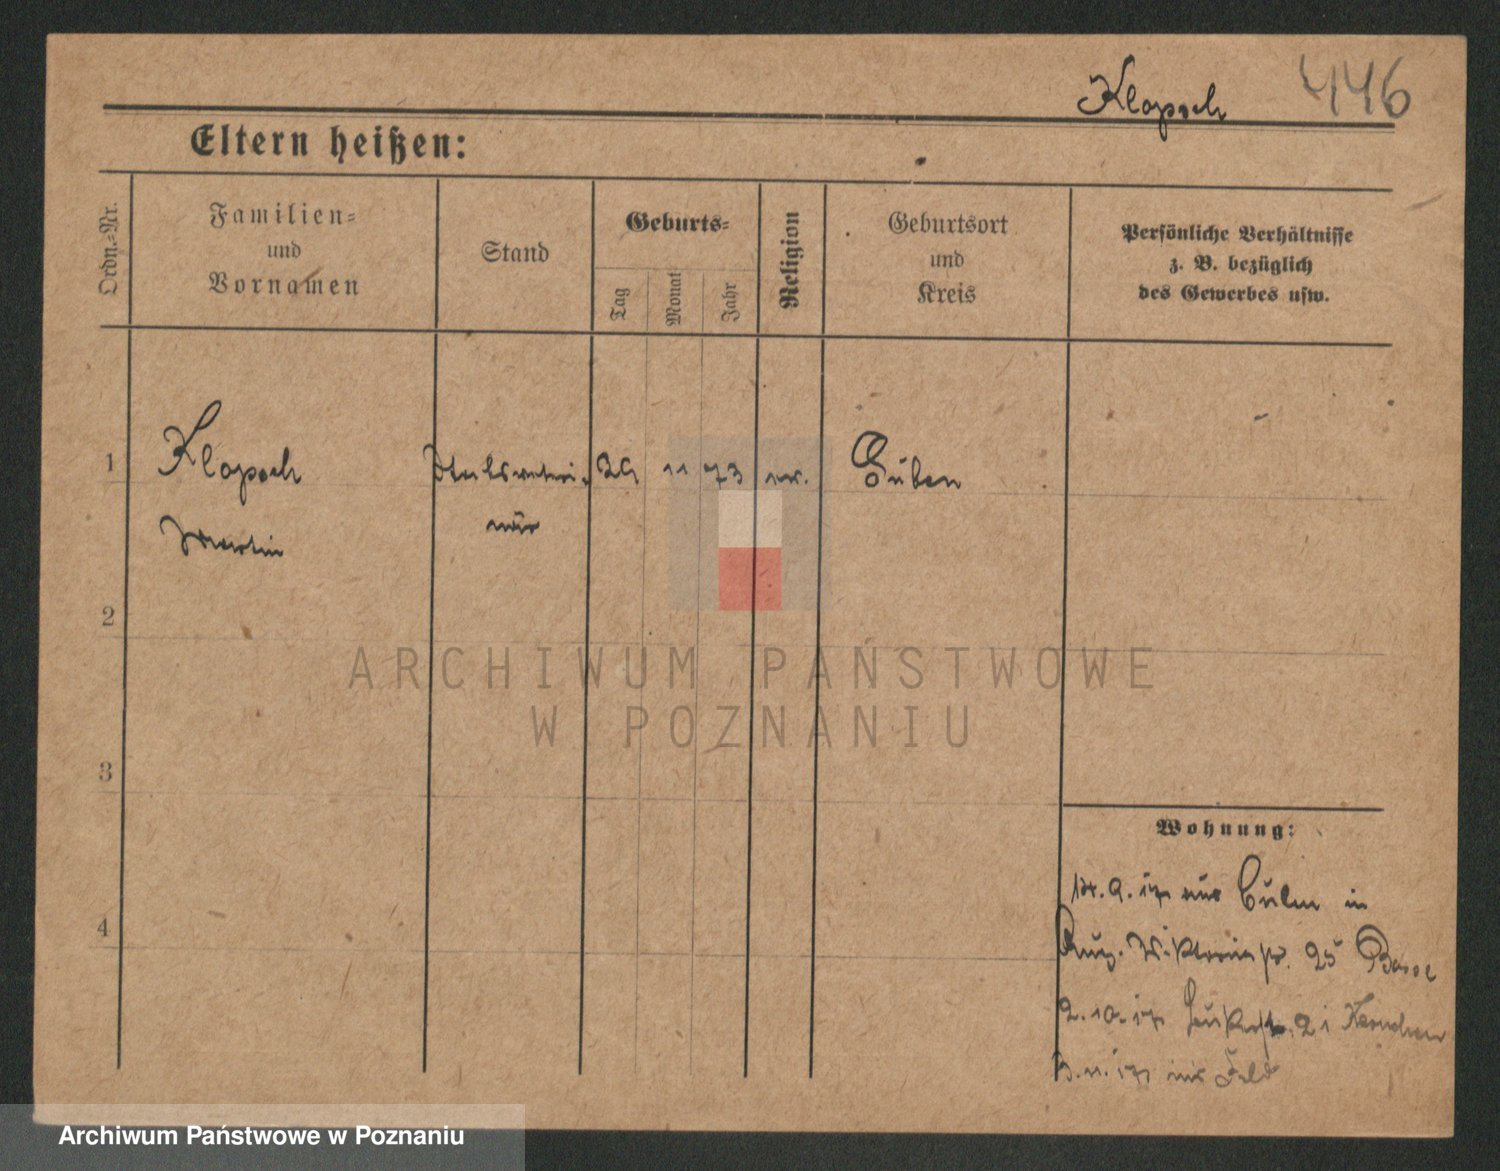 Klopsch 446
Eltern heißen:
Ordn.-Nr.
Familien-
und
Vornamen
Stand
Geburts-
Tag
Monat
Jahr
Religion
Geburtsort
und
Kreis
Persönliche Verhältnisse
z. B. bezüglich
des Gewerbes usw.
1 Klopsch Stabsveteri- 29 11 73 ev. Guben
Martin när
2
3
4
ARCHIWUM PAŃSTWOWE
W POZNANIU
Wohnung:
9. 17 aus Culm in
Aug. Viktoriastr. 25
2. 10. 17 21
11. 17 ins Feld
Archiwum Państwowe w Poznaniu